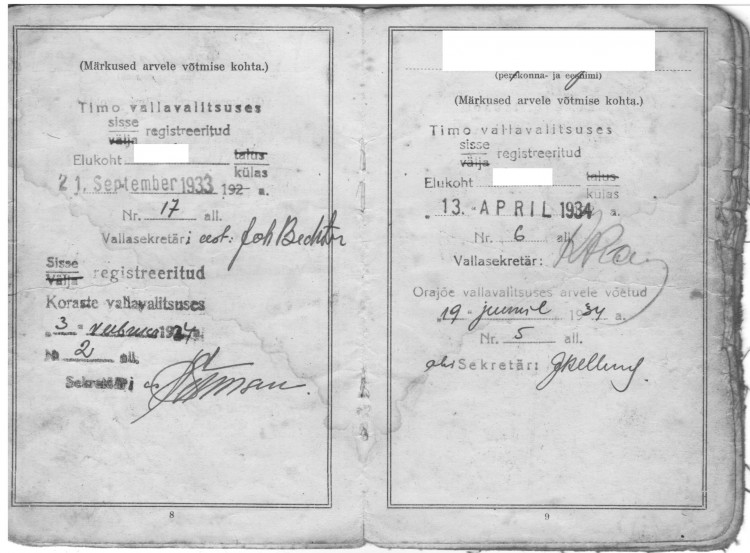 (Märkused arvele võtmise kohta.)
Timo vallavalitsuses
sisse
välja registreeritud
Elukoht talus
külas
21. September 1933 192 a.
Nr. 17 all.
Vallasekretär; eest:
Sisse
Välja registreeritud
Koraste vallavalitsuses
"3" 1934 a.
№ 2 all.
Sekretäri
8
(perekonna- ja eesnimi)
(Märkused arvele võtmise kohta.)
Timo vallavalitsuses
sisse
välja registreeritud
Elukoht talus
külas
13. APRIL 1934 a.
Nr. 6 all.
Vallasekretär:
Orajõe vallavalitsuses arvele võetud
"19" juunil 1934 a.
Nr. 5 all.
abi Sekretär:
9